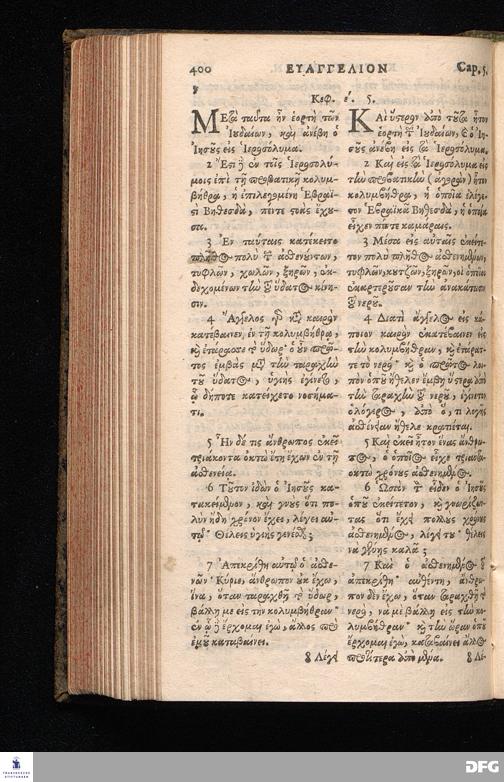 400 ΕΥΑΓΓΕΛΙΟΝ Cap. 5.
Κεφ. έ. 5.
ΜΕτὰ ταῦτα ἦν ἑορτὴ τῶν
Ἰουδαίων, καὶ ἀνέβη ὁ
Ἰησοῦς εἰς Ἱεροσόλυμα.
2 Ἔστι δὲ ἐν τοῖς Ἱεροσολύ-
μοις ἐπὶ τῇ προβατικῇ κολυμ-
βήθρα, ἡ ἐπιλεγομένη Ἑβραϊ-
στὶ Βηθεσδὰ, πέντε στοὰς ἔχου-
σα.
3 Ἐν ταύταις κατέκειτο
πλῆθος πολὺ τῶν ἀσθενούντων,
τυφλῶν, χωλῶν, ξηρῶν, ἐκ-
δεχομένων τὴν τοῦ ὕδατος κίνη-
σιν.
4 Ἄγγελος γὰρ κατὰ καιρὸν
κατέβαινεν ἐν τῇ κολυμβήθρᾳ,
καὶ ἐτάρασσε τὸ ὕδωρ· ὁ οὖν πρῶ-
τος ἐμβὰς μετὰ τὴν ταραχὴν
τοῦ ὕδατος, ὑγιὴς ἐγίνετο,
ᾧ δήποτε κατείχετο νοσήμα-
τι.
5 Ἦν δέ τις ἄνθρωπος ἐκεῖ
τριάκοντα ὀκτὼ ἔτη ἔχων ἐν τῇ
ἀσθενείᾳ.
6 Τοῦτον ἰδὼν ὁ Ἰησοῦς κα-
τακείμενον, καὶ γνοὺς ὅτι πο-
λὺν ἤδη χρόνον ἔχει, λέγει αὐ-
τῷ· Θέλεις ὑγιὴς γενέσθαι;
7 Ἀπεκρίθη αὐτῷ ὁ ἀσθε-
νῶν· Κύριε, ἄνθρωπον οὐκ ἔχω,
ἵνα, ὅταν ταραχθῇ τὸ ὕδωρ,
βάλλῃ με εἰς τὴν κολυμβήθραν·
ἐν ᾧ δὲ ἔρχομαι ἐγὼ, ἄλλος πρὸ
ἐμοῦ καταβαίνει.
8 Λέγει
ΚΑὶ ὕστερον ἀπὸ τοῦτα ἦτον
ἑορτὴ τῶν Ἰουδαίων, καὶ ὁ Ἰη-
σοῦς ἀνέβη εἰς τὰ Ἱεροσόλυμα.
2 Καὶ εἰς τὰ Ἱεροσόλυμα εἰς
τὴν προβατικὴν (ἀγορὰν) ἦτον
κολυμβήθρα, ἡ ὁποία ἐλέγε-
τον Ἑβραϊκὰ Βηθεσδὰ, ἡ ὁποία
εἶχεν πέντε καμάραις.
3 Μέσα εἰς αὐταῖς ἐκείτε-
τον πολὺ πλῆθος ἀσθενημένων,
τυφλῶν, κουτζῶν, ξηρῶν, οἱ ὁποῖοι
ἐκαρτεροῦσαν τὴν ἀνακάτωσιν
τοῦ νεροῦ.
4 Διατὶ ἄγγελος εἰς κά-
ποιον καιρὸν ἐκατέβαινεν εἰς
τὴν κολυμβήθραν, καὶ ἐτάρασ-
σε τὸ νερό· καὶ ὁ πρῶτος λοι-
πὸν ὁποῦ ἤθελεν ἔμβη ὕστερα ἀπὸ
τὴν ταραχὴν τοῦ νεροῦ, ἐγίνετον
ὁλόγερος, ἀπὸ ὅ, τι λογῆς
ἀσθένειαν ἤθελε κρατεῖται.
5 Καὶ ἐκεῖ ἦτον ἕνας ἄνθρω-
πος, ὁ ὁποῖος εἶχε τριαντα-
οκτὼ χρόνους ἀσθενημένος.
6 Ὡσὰν τὸν εἶδεν ὁ Ἰησοῦς
ὁποῦ ἐκείτετον, καὶ γνωρίζων-
τας ὅτι ἔχει πολλοὺς χρόνους
ἀσθενημένος, λέγει του· θέλεις
νὰ γένῃς καλά;
7 Καὶ ὁ ἀσθενημένος τοῦ
ἀπεκρίθη· αὐθέντη, ἄνθρω-
πον δὲν ἔχω, ὅταν ταραχθῇ τὸ
νερὸ, νὰ μὲ βάλλῃ εἰς τὴν κο-
λυμβήθραν· καὶ τὴν ὥραν ὁποῦ
ἔρχομαι ἐγὼ, καταβαίνει ἄλλος
προτήτερα ἀπὸ μένα. 8 Λέ-
FRANCKESCHE
STIFTUNGEN
DFG